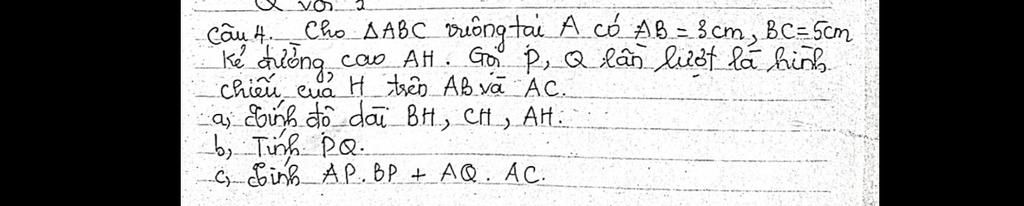 Câu 4. Cho ΔABC vuông tại A có AB = 3cm, BC = 5cm
kẻ đường cao AH. Gọi P, Q lần lượt là hình
chiếu của H trên AB và AC.
a, Tính độ dài BH, CH, AH.
b, Tính PQ.
c, Tính AP.BP + AQ.AC.